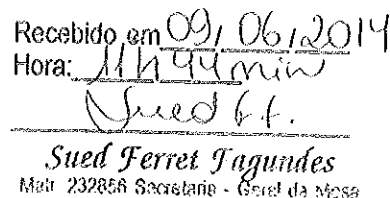 Recebido em 09, 06, 2014
Hora: 11 h 44 min
Sued F.f.
Sued Ferret Fagundes
Matr. 232856 Secretaria - Geral da Mesa